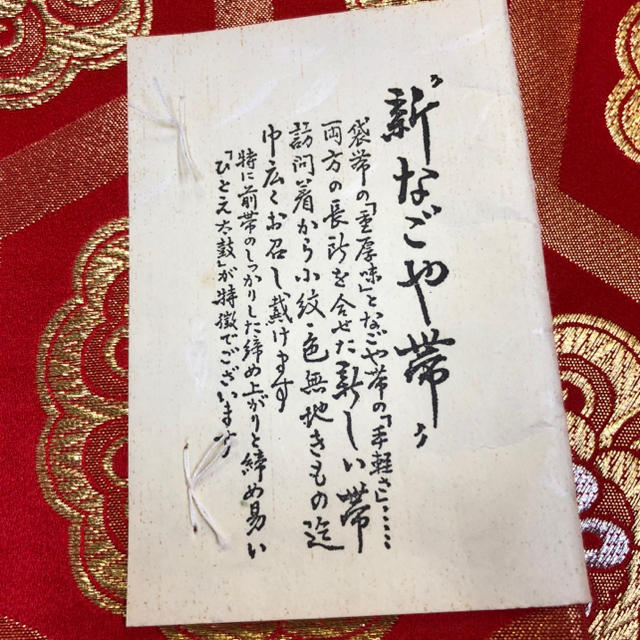 "新なごや帯"
袋帯の「重厚味」となごや帯の「手軽さ」……
両方の長所を合せた新しい帯
訪問着から小紋・色無地きもの迄
巾広くお召し戴けます
特に前帯のしっかりした締め上がりと締め易い
「ひとえ太鼓」が特徴でございます